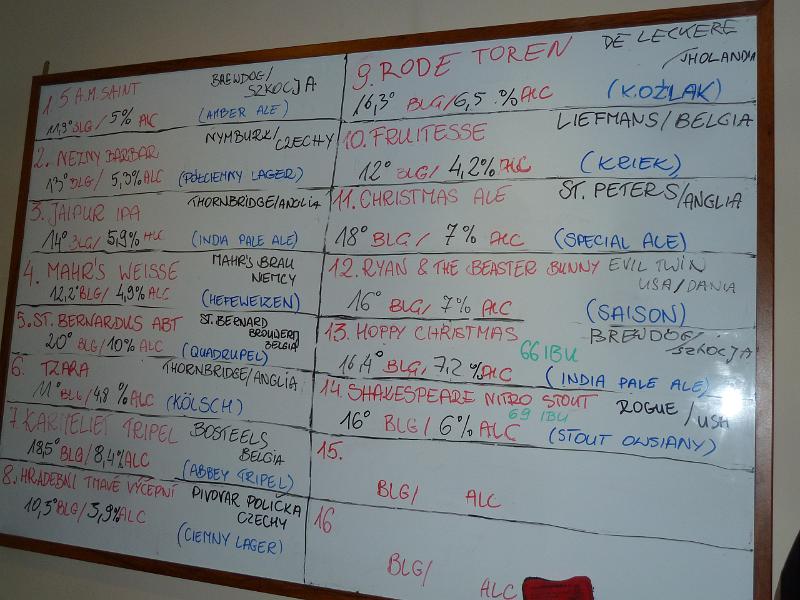 1. 5 A.M. SAINT BREWDOG/SZKOCJA
11,9° BLG/ 5% ALC (AMBER ALE)
2. NEZNY BARBAR NYMBURK/CZECHY
13° BLG/ 5,0% ALC (PÓŁCIEMNY LAGER)
3. JAIPUR IPA THORNBRIDGE/ANGLIA
14° BLG/ 5,9% ALC (INDIA PALE ALE)
4. MAHR'S WEISSE MAHR'S BRÄU NIEMCY
12,2° BLG/ 4,9% ALC (HEFEWEIZEN)
5. ST. BERNARDUS ABT ST. BERNARD BROUWERIJ BELGIA
20° BLG/10% ALC (QUADRUPEL)
6. TZARA THORNBRIDGE/ANGLIA
11° BLG/4,8 % ALC (KÖLSCH)
7. KARMELIET TRIPEL BOSTEELS BELGIA
18,5° BLG/ 8,4% ALC (ABBEY TRIPEL)
8. HRADEBNÍ TMAVÉ VÝČEPNÍ PIVOVAR POLIČKA CZECHY
10,5° BLG/3,9% ALC (CIEMNY LAGER)
9. RODE TOREN DE LECKERE /HOLANDIA
16,3° BLG/6,5 % ALC (KOŹLAK)
10. FRUITESSE LIEFMANS/BELGIA
12° BLG/ 4,2% ALC (KRIEK)
11. CHRISTMAS ALE ST. PETERS/ANGLIA
18° BLG/ 7% ALC (SPECIAL ALE)
12. RYAN & THE BEASTER BUNNY EVIL TWIN USA/DANIA
16° BLG/ 7% ALC (SAISON)
13. HOPPY CHRISTMAS 66 IBU BREWDOG/SZKOCJA
16,4° BLG/ 7,2 % ALC (INDIA PALE ALE)
14. SHAKESPEARE NITRO STOUT 69 IBU ROGUE/USA
16° BLG/ 6% ALC (STOUT OWSIANY)
15.
BLG/ ALC
16
BLG/ ALC